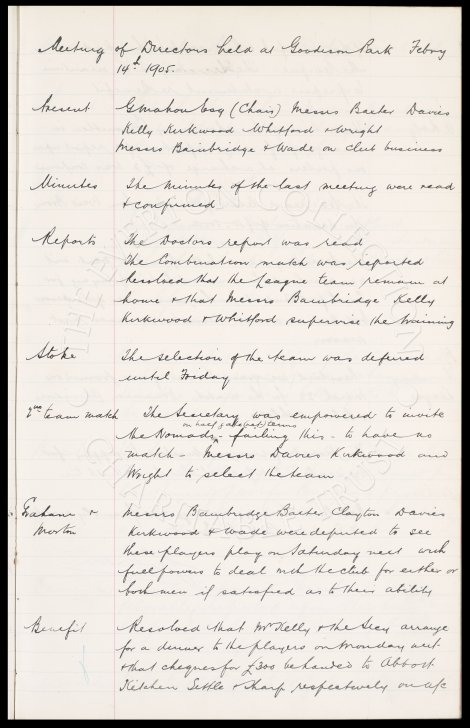 Meeting of Directors held at Goodison Park Febry
14th 1905.
Present G Mahon Esq (Chair) Messrs Baxter Davies
Kelly Kirkwood Whitford & Wright
Messrs Bainbridge & Wade on club business
Minutes The Minutes of the last meeting were read
& confirmed
Reports The Doctors report was read
The Combination match was reported
Resolved that the League team remain at
home & that Messrs Bainbridge Kelly
Kirkwood & Whitford supervise the training
Stoke The selection of the team was deferred
until Friday
2nd team match The Secretary was empowered to invite
on half gate (net) terms
the Nomads - failing this - to have no
match - Messrs Davies Kirkwood and
Wright to select the team
Graham & Messrs Bainbridge Baxter Clayton Davies
Morton Kirkwood & Wade were deputed to see
these players play on Saturday next with
full powers to deal with the club for either or
both men if satisfied as to their ability
Benefit Resolved that Mr Kelly & the Secy arrange
for a dinner to the players on Monday next
& that cheques for £300 be handed to Abbott
Kitchen Settle & Sharp respectively on a/c
THE EVERTON COLLECTION
CHARITABLE TRUST